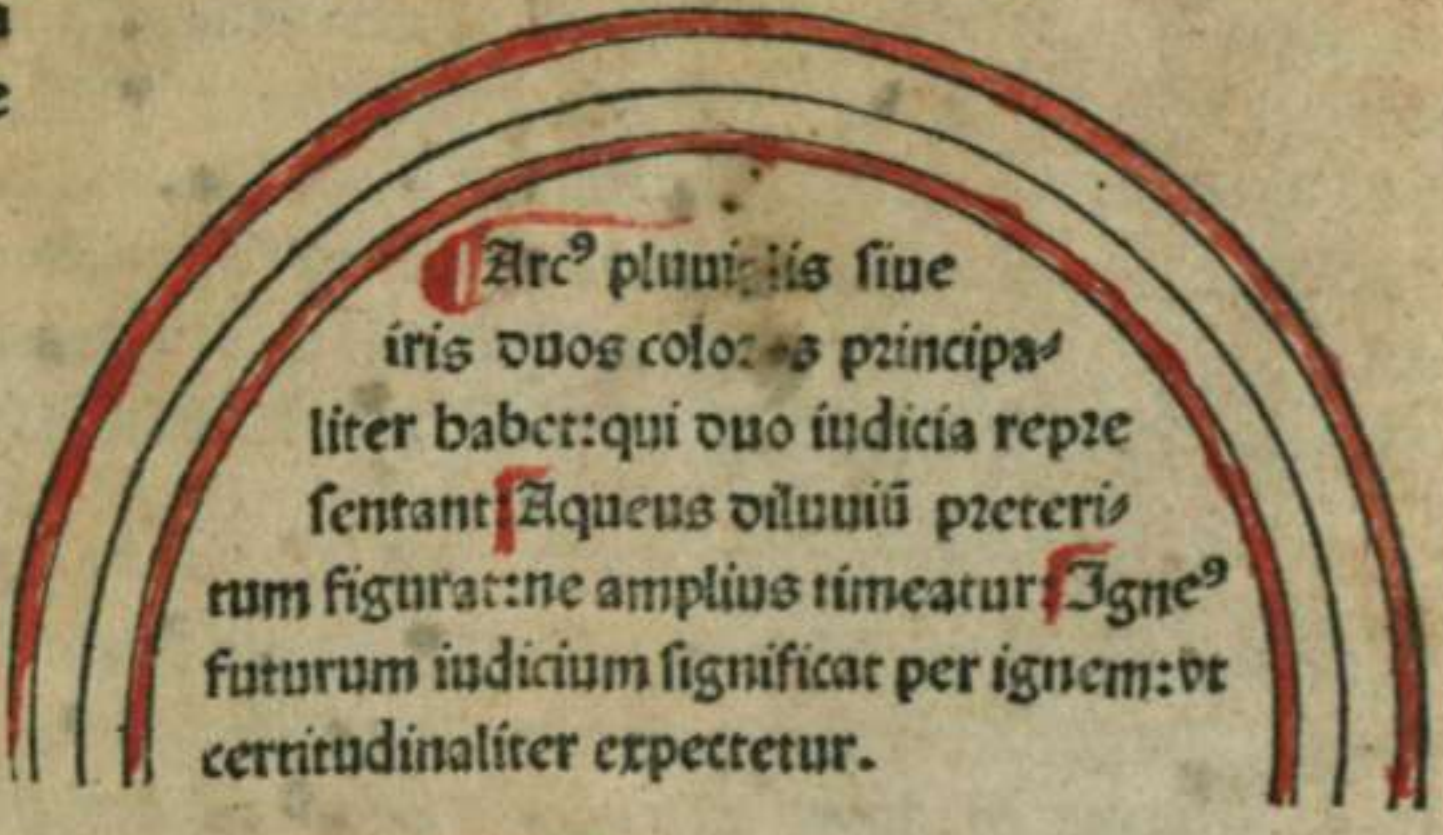 Arcꝰ pluuialis siue
iris duos colores principa⸗
liter habet:qui duo iudicia repre
sentant Aqueus diluuiū preteri⸗
tum figurat:ne amplius timeatur Igneꝰ
futurum iudicium significat per ignem:vt
certitudinaliter expectetur.